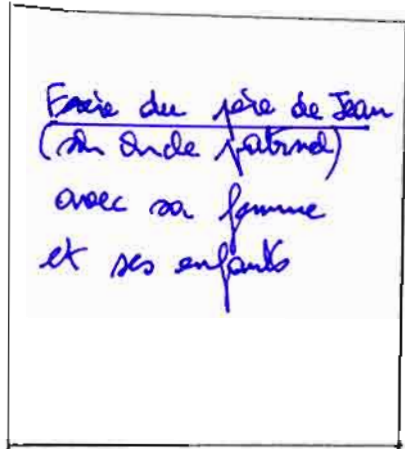 Frère du père de Jean
(son oncle paternel)
avec sa femme
et ses enfants